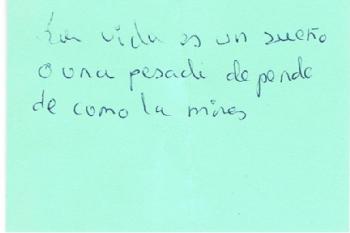 La vida es un sueño
o una pesadi depende
de como la mires